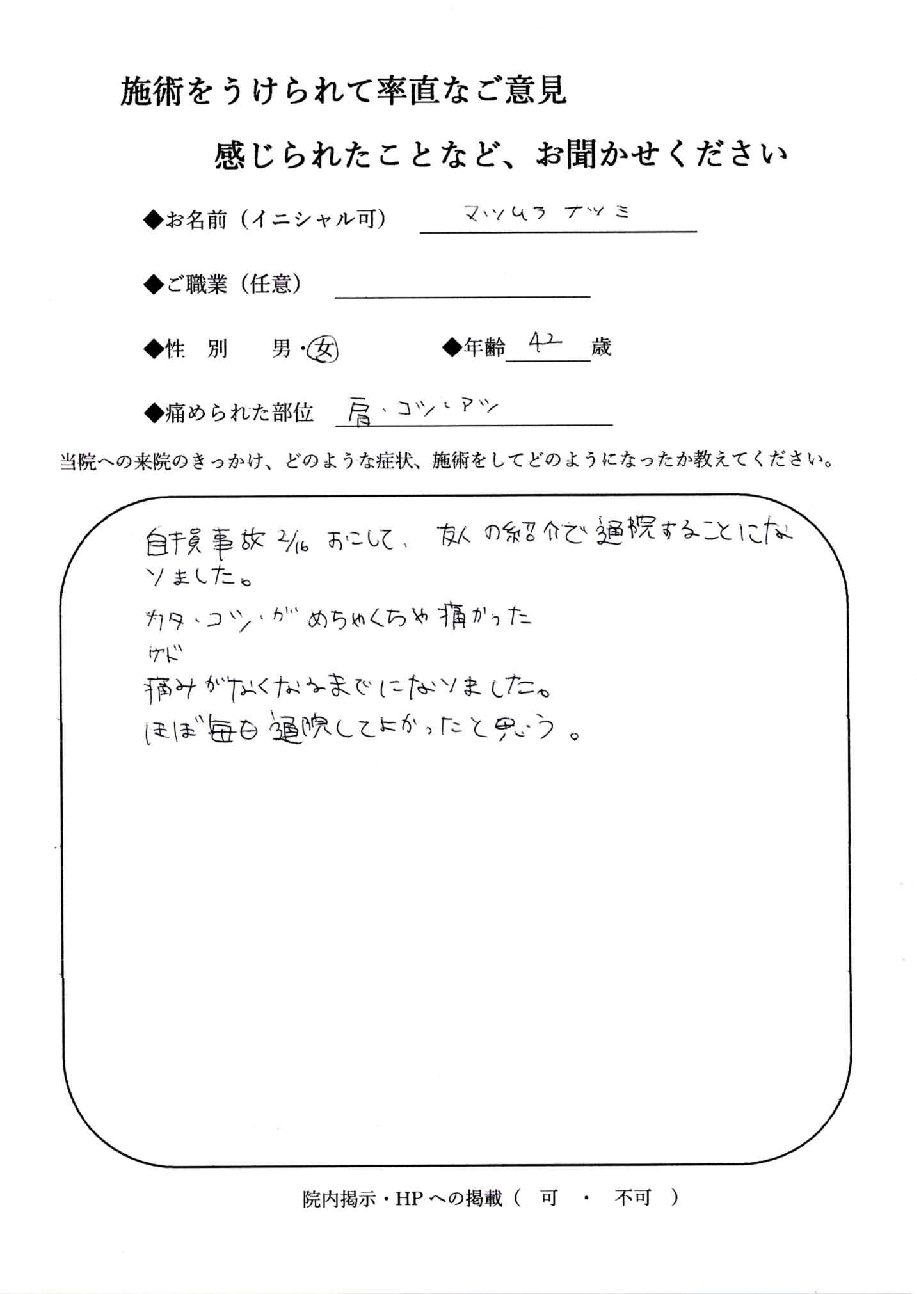 施術をうけられて率直なご意見
感じられたことなど、お聞かせください
◆お名前（イニシャル可） マツムラ ナツミ
◆ご職業（任意）
◆性 別 男・女 ◆年齢 42 歳
◆痛められた部位 肩・コツ・アツ
当院への来院のきっかけ、どのような症状、施術をしてどのようになったか教えてください。
自損事故 2/16 おこして、友人の紹介で通院することにな
りました。
カタ・コツ・が めちゃくちゃ痛かった
ケド
痛みがなくなるまでになりました。
ほぼ毎日通院してよかったと思う。
院内掲示・HPへの掲載（ 可 ・ 不可 ）